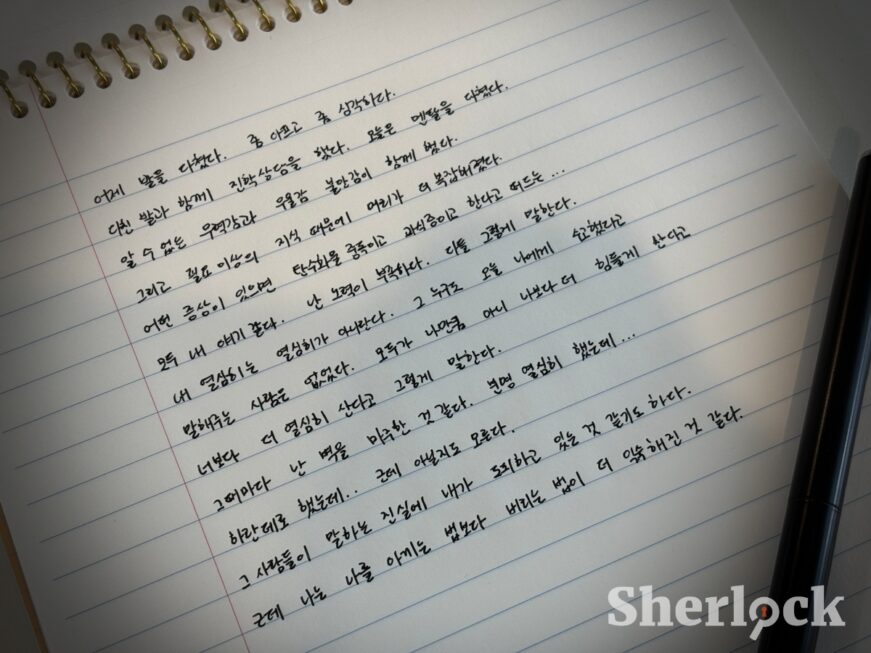 어제 발을 다쳤다. 좀 아프고 좀 심각하다.
다친 발과 함께 진학상담을 했다. 오늘은 멘탈을 다쳤다.
알 수 없는 우력감과 우울감 불안감이 함께 왔다.
그리고 필요 이상의 지식 때문에 머리가 더 복잡해졌다.
어떤 증상이 있으면 탄수화물 중독이고 과식증이고 한다고 떠드는...
모두 내 얘기 같다. 난 노력이 부족하다. 다들 그렇게 말한다.
내 열심히는 열심히가 아니란다. 그 누구도 오늘 나에게 수고했다고
말해주는 사람은 없었다. 모두가 나만큼 아니 나보다 더 힘들게 산다고
너보다 더 열심히 산다고 그렇게 말한다.
그때마다 난 벽을 마주한 것 같다. 분명 열심히 했는데...
하란대로 했는데.. 근데 아닐지도 모른다.
그 사람들이 말하는 진실에 내가 도피하고 있는 것 같기도 하다.
근데 나는 나를 아끼는 법보다 버리는 법이 더 익숙해진 것 같다.
Sherlock